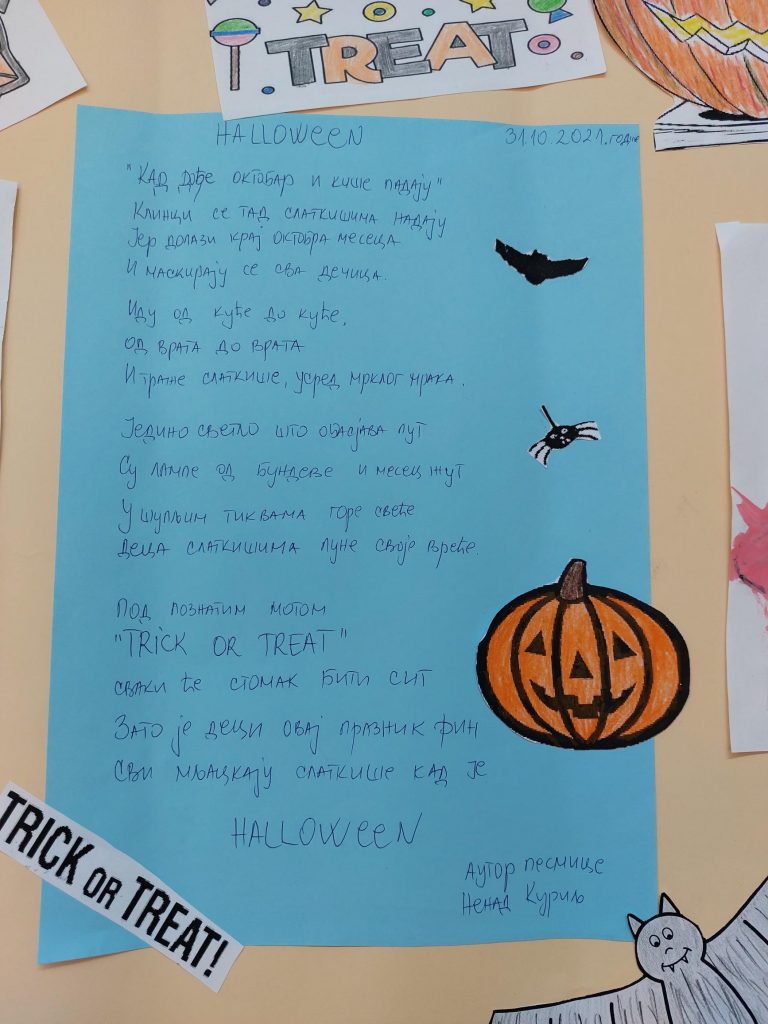 TREAT
HALLOWEEN
31.10.2021. године
"Кад дође октобар и кише падају"
Клинци се тад слаткишима надају
Јер долази крај октобра месеца
И маскирају се сва дечица.
Иду од куће до куће,
од врата до врата
И траже слаткише, усред мрклог мрака.
Једино светло што обасјава пут
Су лампе од бундеве и месец жут
У шупљим тиквама горе свеће
Деца слаткишима пуне своје вреће.
Под познатим мотом
"TRICK OR TREAT"
сваки ће стомак бити сит
Зато је деци овај празник фин
Сви мљацкају слаткише кад је
HALLOWEEN
Аутор песмице
Ненад Куриљ
TRICK OR TREAT!